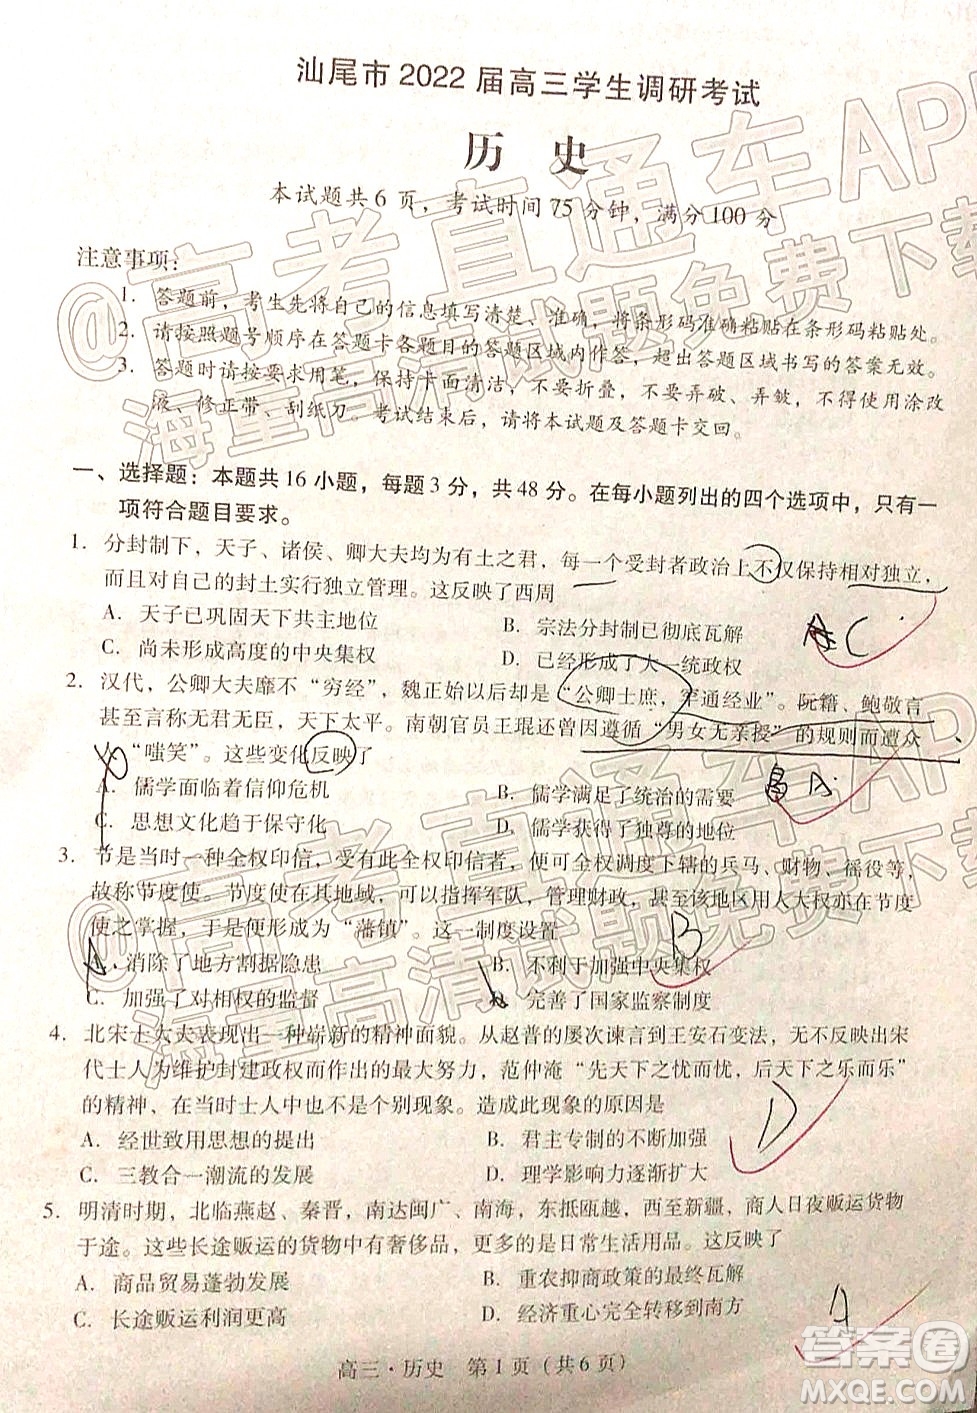 汕尾市2022届高三学生调研考试
历 史
本试题共6页，考试时间75分钟，满分100分
注意事项：
1. 答题前，考生先将自己的信息填写清楚、准确，将条形码准确粘贴在条形码粘贴处。
2. 请按照题号顺序在答题卡各题目的答题区域内作答，超出答题区域书写的答案无效。
3. 答题时请按要求用笔，保持卡面清洁，不要折叠，不要弄破、弄皱，不得使用涂改
液、修正带、刮纸刀。考试结束后，请将本试题及答题卡交回。
一、选择题：本题共16小题，每题3分，共48分。在每小题列出的四个选项中，只有一
项符合题目要求。
1. 分封制下，天子、诸侯、卿大夫均为有土之君，每一个受封者政治上不仅保持相对独立，
而且对自己的封土实行独立管理。这反映了西周
A. 天子已巩固天下共主地位 B. 宗法分封制已彻底瓦解
C. 尚未形成高度的中央集权 D. 已经形成了大一统政权
C
2. 汉代，公卿大夫靡不“穷经”，魏正始以后却是“公卿士庶，罕通经业”。阮籍、鲍敬言
甚至言称无君无臣，天下太平。南朝官员王琨还曾因遵循“男女无亲授”的规则而遭众
“嗤笑”。这些变化反映了
A. 儒学面临着信仰危机 B. 儒学满足了统治的需要
C. 思想文化趋于保守化 D. 儒学获得了独尊的地位
A
3. 节是当时一种全权印信，受有此全权印信者，便可全权调度下辖的兵马、财物、徭役等，
故称节度使。节度使在其地域，可以指挥军队，管理财政，甚至该地区用人大权亦在节度
使之掌握，于是便形成为“藩镇”。这一制度设置
A. 消除了地方割据隐患 B. 不利于加强中央集权
C. 加强了对相权的监督 D. 完善了国家监察制度
B
4. 北宋士大夫表现出一种崭新的精神面貌。从赵普的屡次谏言到王安石变法，无不反映宋
代士人为维护封建政权而作出的艰辛努力。范仲淹“先天下之忧而忧，后天下之乐而乐”
的精神，在当时士人中也不是个别现象。造成此现象的原因是
A. 经世致用思想的提出 B. 君主专制的不断加强
C. 三教合一潮流的发展 D. 理学影响力逐渐扩大
D
5. 明清时期，北临燕赵、秦晋，南达闽广、南海，东抵瓯越，西至新疆，商人日夜贩运货物
于途。这些长途贩运的货物中有奢侈品，更多的是日用生活用品。这反映了
A. 商品贸易蓬勃发展 B. 重农抑商政策的最终瓦解
C. 长途贩运利润更高 D. 经济重心完全转移到南方
A
高三·历史 第1页（共6页）
@高考直通车APP
海量高清试题免费下载
@高考直通车APP
海量高清试题免费下载
答案圈
MXQE.COM